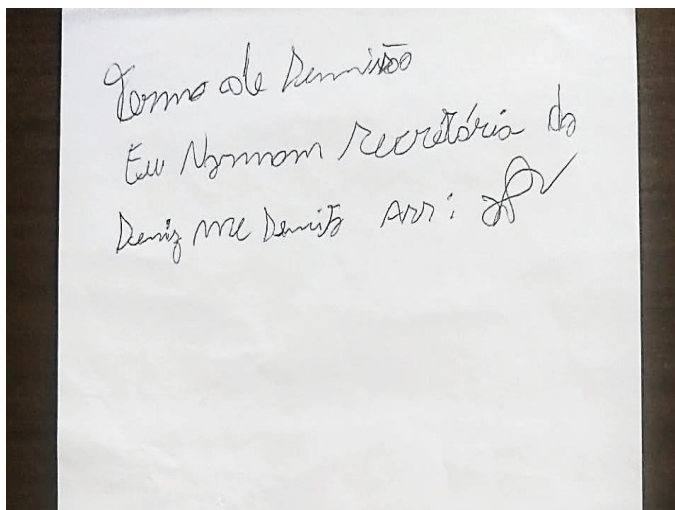 Termo de Demissão
Eu Normam secretária do
Deniz me Demito Ass: